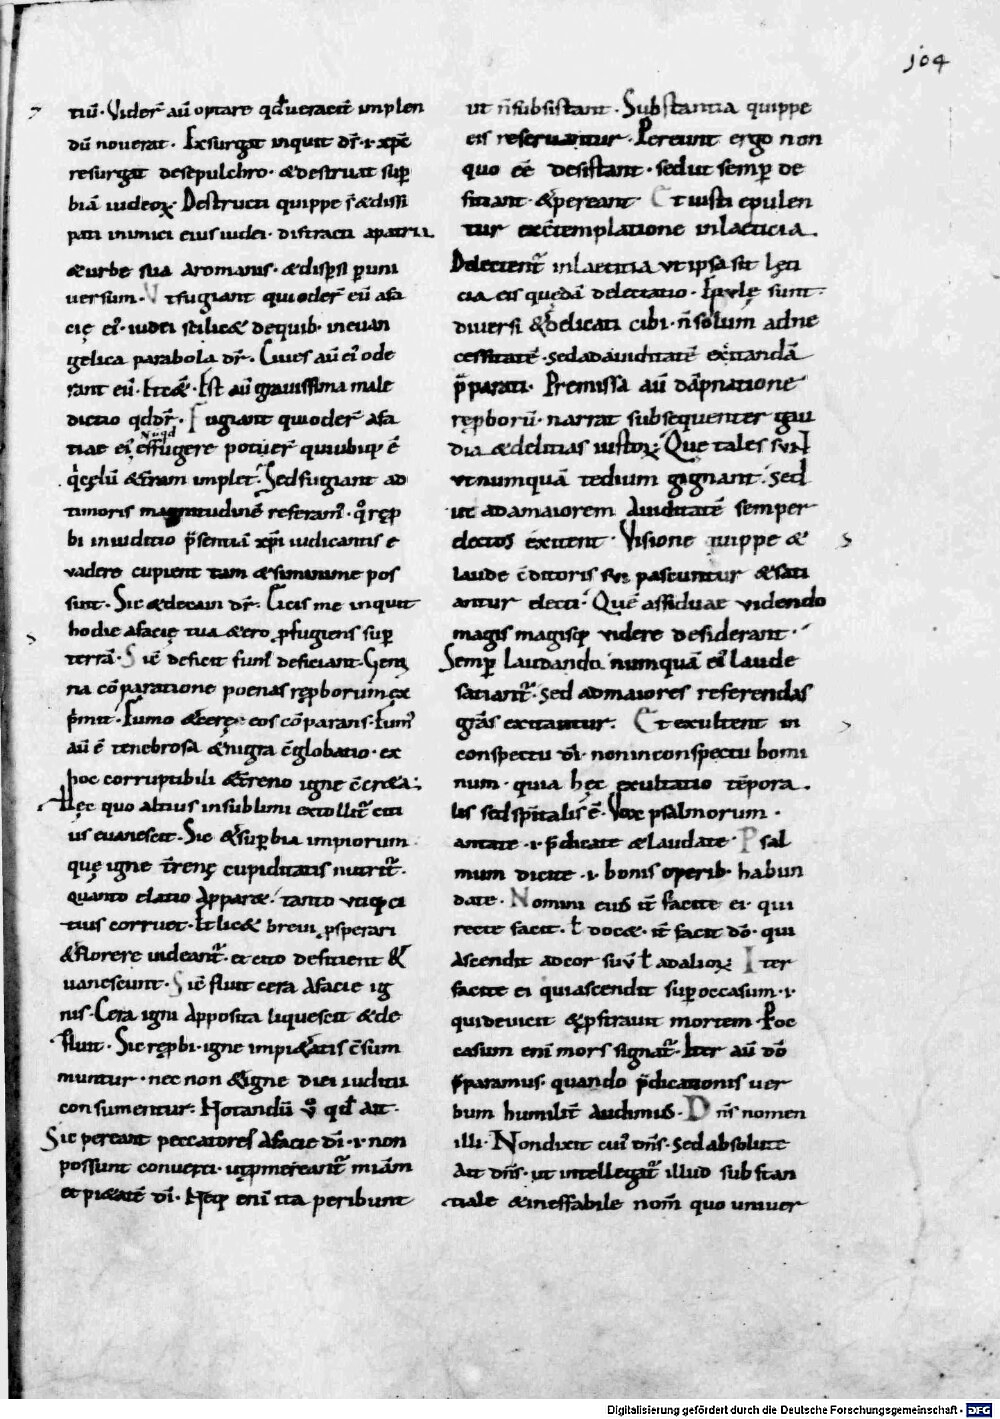 104
tiū. Vider̄ aū optare qd̄ ueracit̄ implen
dū nouerat. Exsurgat inquit dr̄ .i. xp̄c
resurgat de sepulchro. & destruat sup̱
biā iudeoꝝ. Destructi quippe s̄ & dissi
pati inimici eius iudei. distracti a patria
& urbe sua a romanis. & disp̱si p̱ uni
uersum. Vt fugiant qui oder̄ eū a fa
cię ei᾽. iudei scilic& de quib. in euan
gelica parabola dr̄. Ciues aū ei᾽ ode
rant eū. It& c̄. Est aū grauissima male
dictio qd dr̄. Fugiant qui oder̄ a fa
tiae ei᾽. effugere potuer̄ qui ubiq̨ ē
q̇ cęlū & terram implet. Sed fugiant ad
timoris magnitudinē referam᾽. qd̄ rep̱
bi in iuditio p̄sentiā xp̄i iudicantis e
vadere cupient tam & si minime pos
sint. Sic & de cain dr̄. Eicis me inquit
hodie a facię tua & ero ꝓfugiens sup̱
terrā. Sic̄ deficit fum᾽ deficiant. Gemi
na cōparatione poenas rep̱borum ex
p̄mit. Fumo & cerę eos cōparans. Fum᾽
aū ē tenebrosa & nigra c̄globatio. ex
hoc corruptibili & t̄reno igne c̄creta.
Hęc quo altius in sublimi extollit̄ citi
us euanescit. Sic & sup̱bia impiorum
quę igne t̄renę cupiditatis nutrit̄.
quanto elatio appar&. tanto utiq̨ ci
tius corruet. Et lic& breui ꝓsperari
& florere uideant̄. et cito deficient &
uanescunt. Sic̄ fluit cera a facie ig
nis. Cera igni apposita liquescit & de
fluit. Sic rep̱bi. igne impi&atis c̄sum
muntur. nec non & igne diei iuditii
consumentur. Notandū v᾽ qd̄ ait.
Sic pereant peccatores a facie dī. i. non
possunt conuerti. ut ꝓmereant̄ miām
et pi&atē dī. Neq̨ enī ita peribunt
ut n̄ subsistant. Substantia quippe
eis reseruantur. Pereunt ergo non
quo eē desistant. sed ut semp̱ de
fitiant & pereant. Et iusti epulen
tur ex c̄templatione in laeticia.
Delectent̄ in laetitia ut ipsa sit lęti
cia eis quędā delectatio. Epulę sunt
diuersi & delicati cibi. n̄ solum ad ne
cessitatē. sed ad auiditatē excitandā
p̄parati. Premissa aū dāpnatione
rep̱borū. narrat subsequenter gau
dia & delitias iustoꝝ. Que tales sunt
ut numquā tedium gignant. Sed
ut ad amaiorem auiditatē semper
electos exitent. Visione quippe &
laude c̄ditoris sui pascuntur & sati
antur electi. Quē assiduae uidendo
magis magisq̨ videre desiderant.
Semp̱ laudando numquā ei᾽ laude
satiant̄. Sed ad maiores referendas
gr̄as excitantur. Et exultent in
conspectu dī. non in conspectu homi
num. quia hęc exultatio tēpora
lis sed sp̄italis ē. Vox psalmorum.
antate .i. p̄dicate & laudate. Psal
mum dicite .i. bonis operib. habun
date. Nomini eius it̄ facite ei. qui
recte facit. ł doc&. it̄ facit dō. qui
ascendit ad cor suū ł ad alioꝝ. Iter
facite ei qui ascendit sup̱ occasum .i.
qui deuicit & ꝓstrauit mortem. P oc
casum enī mors signat̄. Iter aū dō
p̄paramus. quando p̄dicationis uer
bum humilit̄ audimus. Dn̄s nomen
illi. Non dixit cui᾽ dn̄s. Sed absolute
ait dn̄s. ut intellegat̄ illud substan
tiale & ineffabile nom̄ quo uniuer
Digitalisierung gefördert durch die Deutsche Forschungsgemeinschaft - DFG